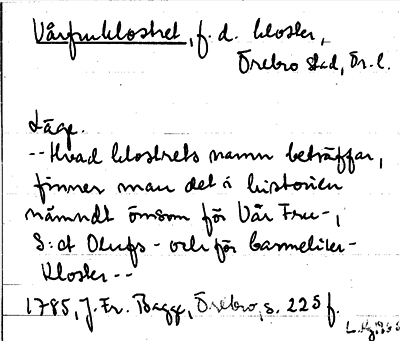 Vårfruklostret, f. d. kloster,
Örebro stad, Ör. l.
Läge.
-- Hvad klostrets namn beträffar,
finner man det i historien
nämndt ömsom för Vår Fru-,
S:ct Olufs- och för Carmeliter-
Kloster --
1785, J. Fr. Bagge, Örebro, s. 225 f.